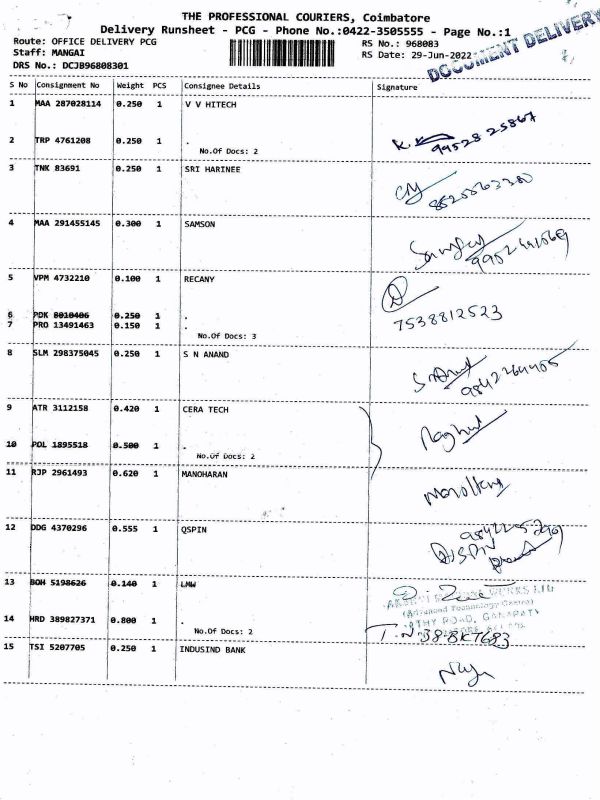 THE PROFESSIONAL COURIERS, Coimbatore
Delivery Runsheet - PCG - Phone No.:0422-3505555 - Page No.:1
Route: OFFICE DELIVERY PCG
RS No.: 968083
Staff: MANGAI
RS Date: 29-Jun-2022
DRS No.: DCJB96808301
DOCUMENT DELIVERY
S No Consignment No Weight PCS Consignee Details Signature
1 MAA 287028114 0.250 1 V V HITECH
2 TRP 4761208 0.250 1 .
No.Of Docs: 2
99528 25867
3 TNK 83691 0.250 1 SRI HARINEE
4 MAA 291455145 0.300 1 SAMSON
5 VPM 4732210 0.100 1 RECANY
6 PDK 8010406 0.250 1 .
7 PRO 13491463 0.150 1 .
No.Of Docs: 3
7538812523
8 SLM 298375045 0.250 1 S N ANAND
9842264405
9 ATR 3112158 0.420 1 CERA TECH
10 POL 1895518 0.500 1 .
No.Of Docs: 2
11 RJP 2961493 0.620 1 MANOHARAN
12 DDG 4370296 0.555 1 QSPIN
QSPIN
13 BOH 5198626 0.140 1 LMW
(Advanced Technology Centre)
14 HRD 389827371 0.800 1 .
No.Of Docs: 2
15 TSI 5207705 0.250 1 INDUSIND BANK